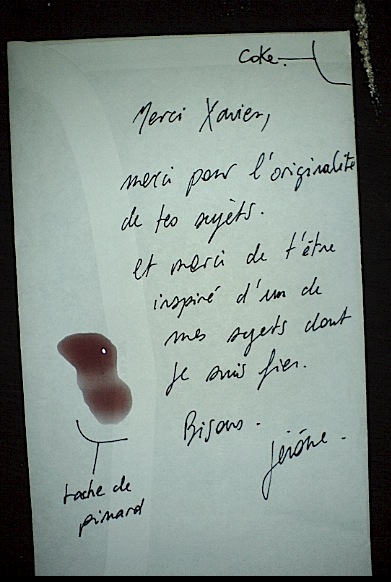 Coke.
Merci Xavier,
merci pour l'originalité
de tes sujets.
et merci de t'être
inspiré d'un de
mes sujets dont
je suis fier.
Bisous.
Jérôme.
tache de
pinard